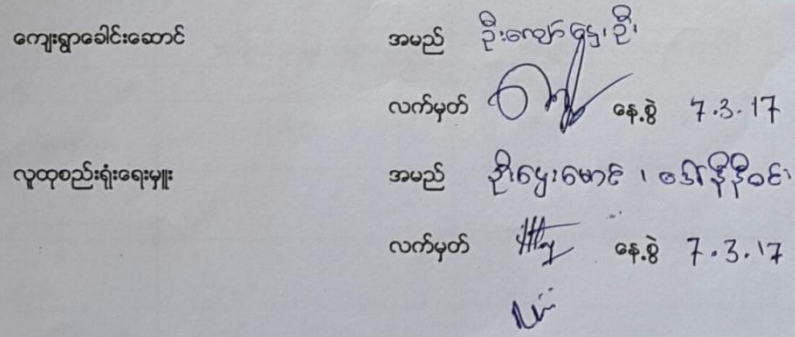 ကျေးရွာခေါင်းဆောင် အမည် ဦးကျော်ဌေးဦး
လက်မှတ် နေ့စွဲ 7.3.17
လူထုစည်းရုံးရေးမှူး အမည် ဦးဌေးမောင် ၊ ဒေါ်နီနီဝင်း
လက်မှတ် နေ့စွဲ 7.3.17